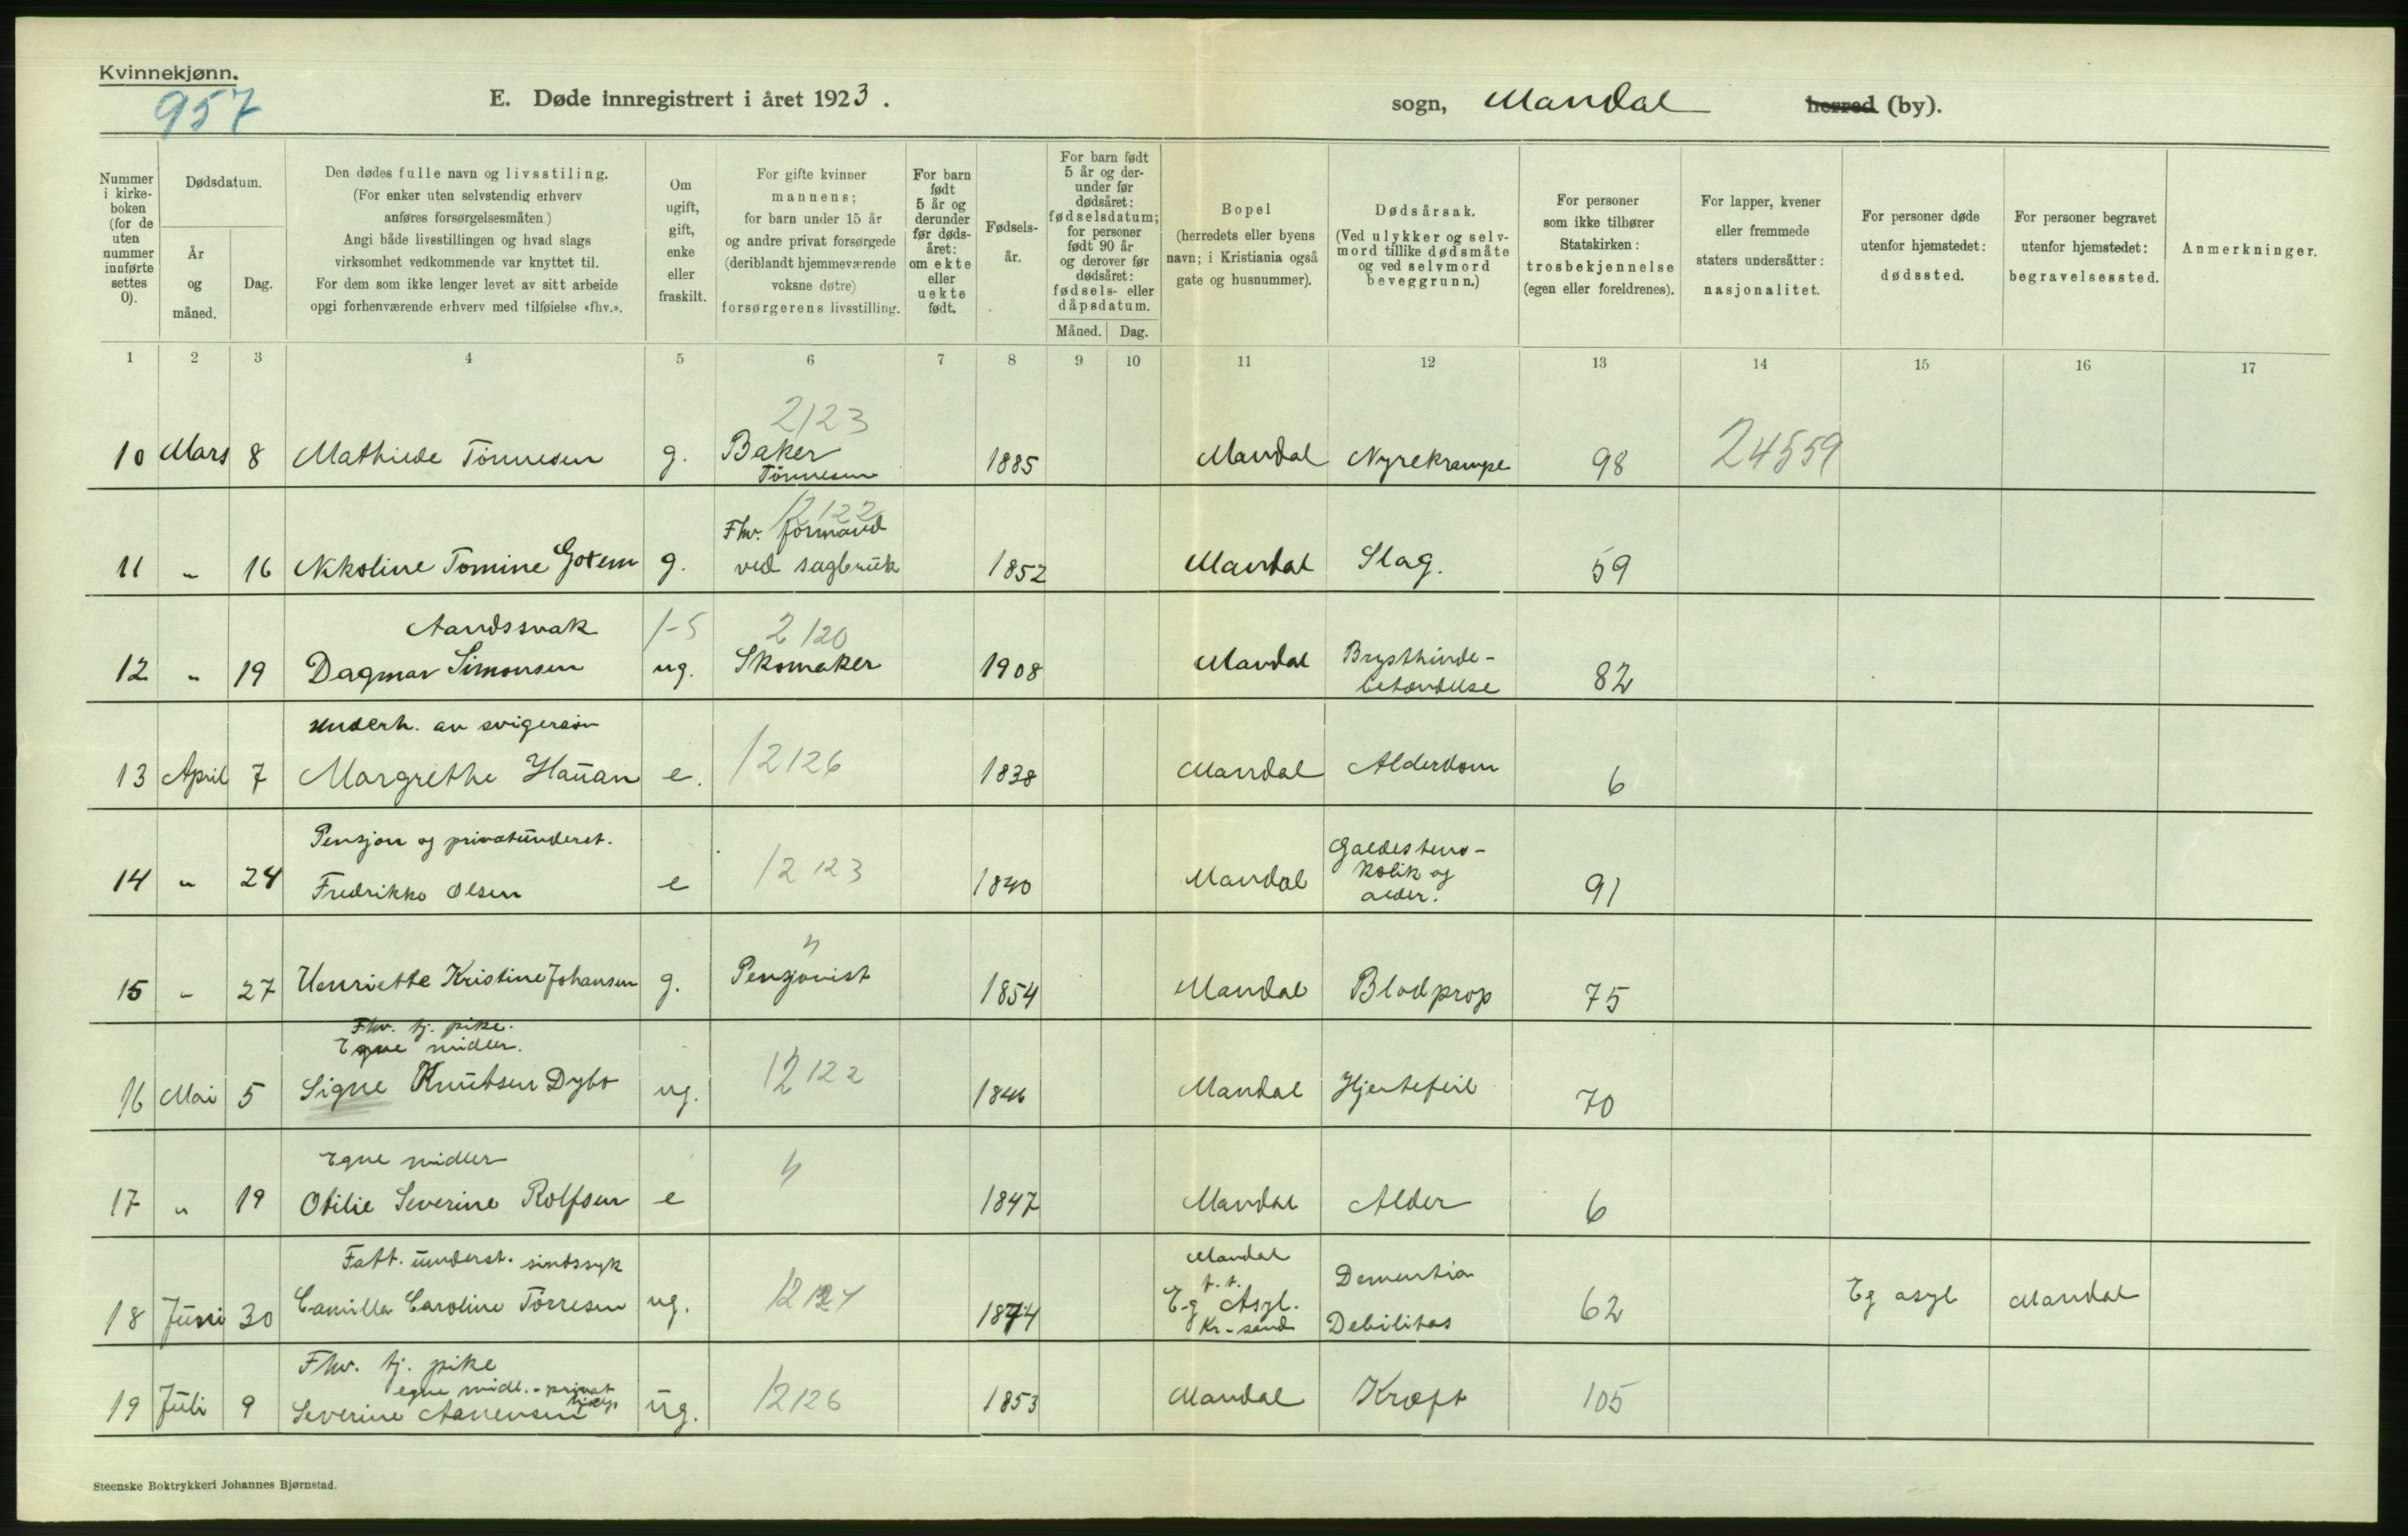 Kvinnekjønn.
957
E. Døde innregistrert i året 1923.
sogn, Mandal herred (by).
Nummer i kirke-boken (for de uten nummer innførte settes 0).
Dødsdatum.
År og måned.
Dag.
Den dødes fulle navn og livsstiling.
(For enker uten selvstendig erhverv
anføres forsørgelsesmåten)
Angi både livsstillingen og hvad slags
virksomhet vedkommende var knyttet til.
For dem som ikke lenger levet av sitt arbeide
opgi forhenværende erhverv med tilføielse «fhv.».
Om ugift, gift, enke eller fraskilt.
For gifte kvinner
mannens;
for barn under 15 år
og andre privat forsørgede
(deriblandt hjemmeværende
voksne døtre)
forsørgerens livsstilling.
For barn født 5 år og derunder før døds-året: om ekte eller uekte født.
Fødsels-år.
For barn født 5 år og der-under før dødsåret: fødselsdatum; for personer født 90 år og derover før dødsåret: fødsels- eller dåpsdatum.
Måned. Dag.
Bopel
(herredets eller byens
navn; i Kristiania også
gate og husnummer).
Dødsårsak.
(Ved ulykker og selv-
mord tillike dødsmåte
og ved selvmord
beveggrunn.)
For personer
som ikke tilhører
Statskirken:
trosbekjennelse
(egen eller foreldrenes).
For lapper, kvener
eller fremmede
staters undersåtter:
nasjonalitet.
For personer døde
utenfor hjemstedet:
dødssted.
For personer begravet
utenfor hjemstedet:
begravelsessted.
Anmerkninger.
1 2 3 4 5 6 7 8 9 10 11 12 13 14 15 16 17
2123
10 Mars 8 Mathilde Tönnesen g. Baker 1885 Mandal Nyrekrampe 98 24559
Tönnesen
12122
Fhv. formand
11 " 16 Nikoline Tomine Gotem g. ved sagbruk 1852 Mandal Slag. 59
Aandssvak 1-5 2120
12 " 19 Dagmar Simonsen ug. Skomaker 1908 Mandal Brysthinde-
betændelse 82
underh. av svigersøn
13 April 7 Margrethe Hauan e. 12126 1838 Mandal Alderdom 6
Pensjon og privatunderst.
14 " 24 Fredrikke Olsen e 12123 1840 Mandal Galdestens-
kolik og
alder. 91
15 " 27 Henriette Kristine Johansen g. Pensjonist 1854 Mandal Blodprop 75
Fhv. tj. pike.
Egne midler.
16 Mai 5 Signe Knutsen Dybo ug. 12122 1846 Mandal Hjertefeil 70
Egne midler
17 " 19 Otilie Severine Rolfsen e 1847 Mandal Alder 6
Fatt. underst. sindssyk
18 Juni 30 Camilla Caroline Törresen ug. 1874 Mandal
t. t.
Eg Asyl.
Kr-sand
Dementia
Debilitas 62 Eg asyl Mandal
Fhv. tj. pike
egne midl. - privat
hjælp
19 Juli 9 Severine Aanensen ug. 12126 1853 Mandal Kræft 105
Steenske Boktrykkeri Johannes Bjørnstad.